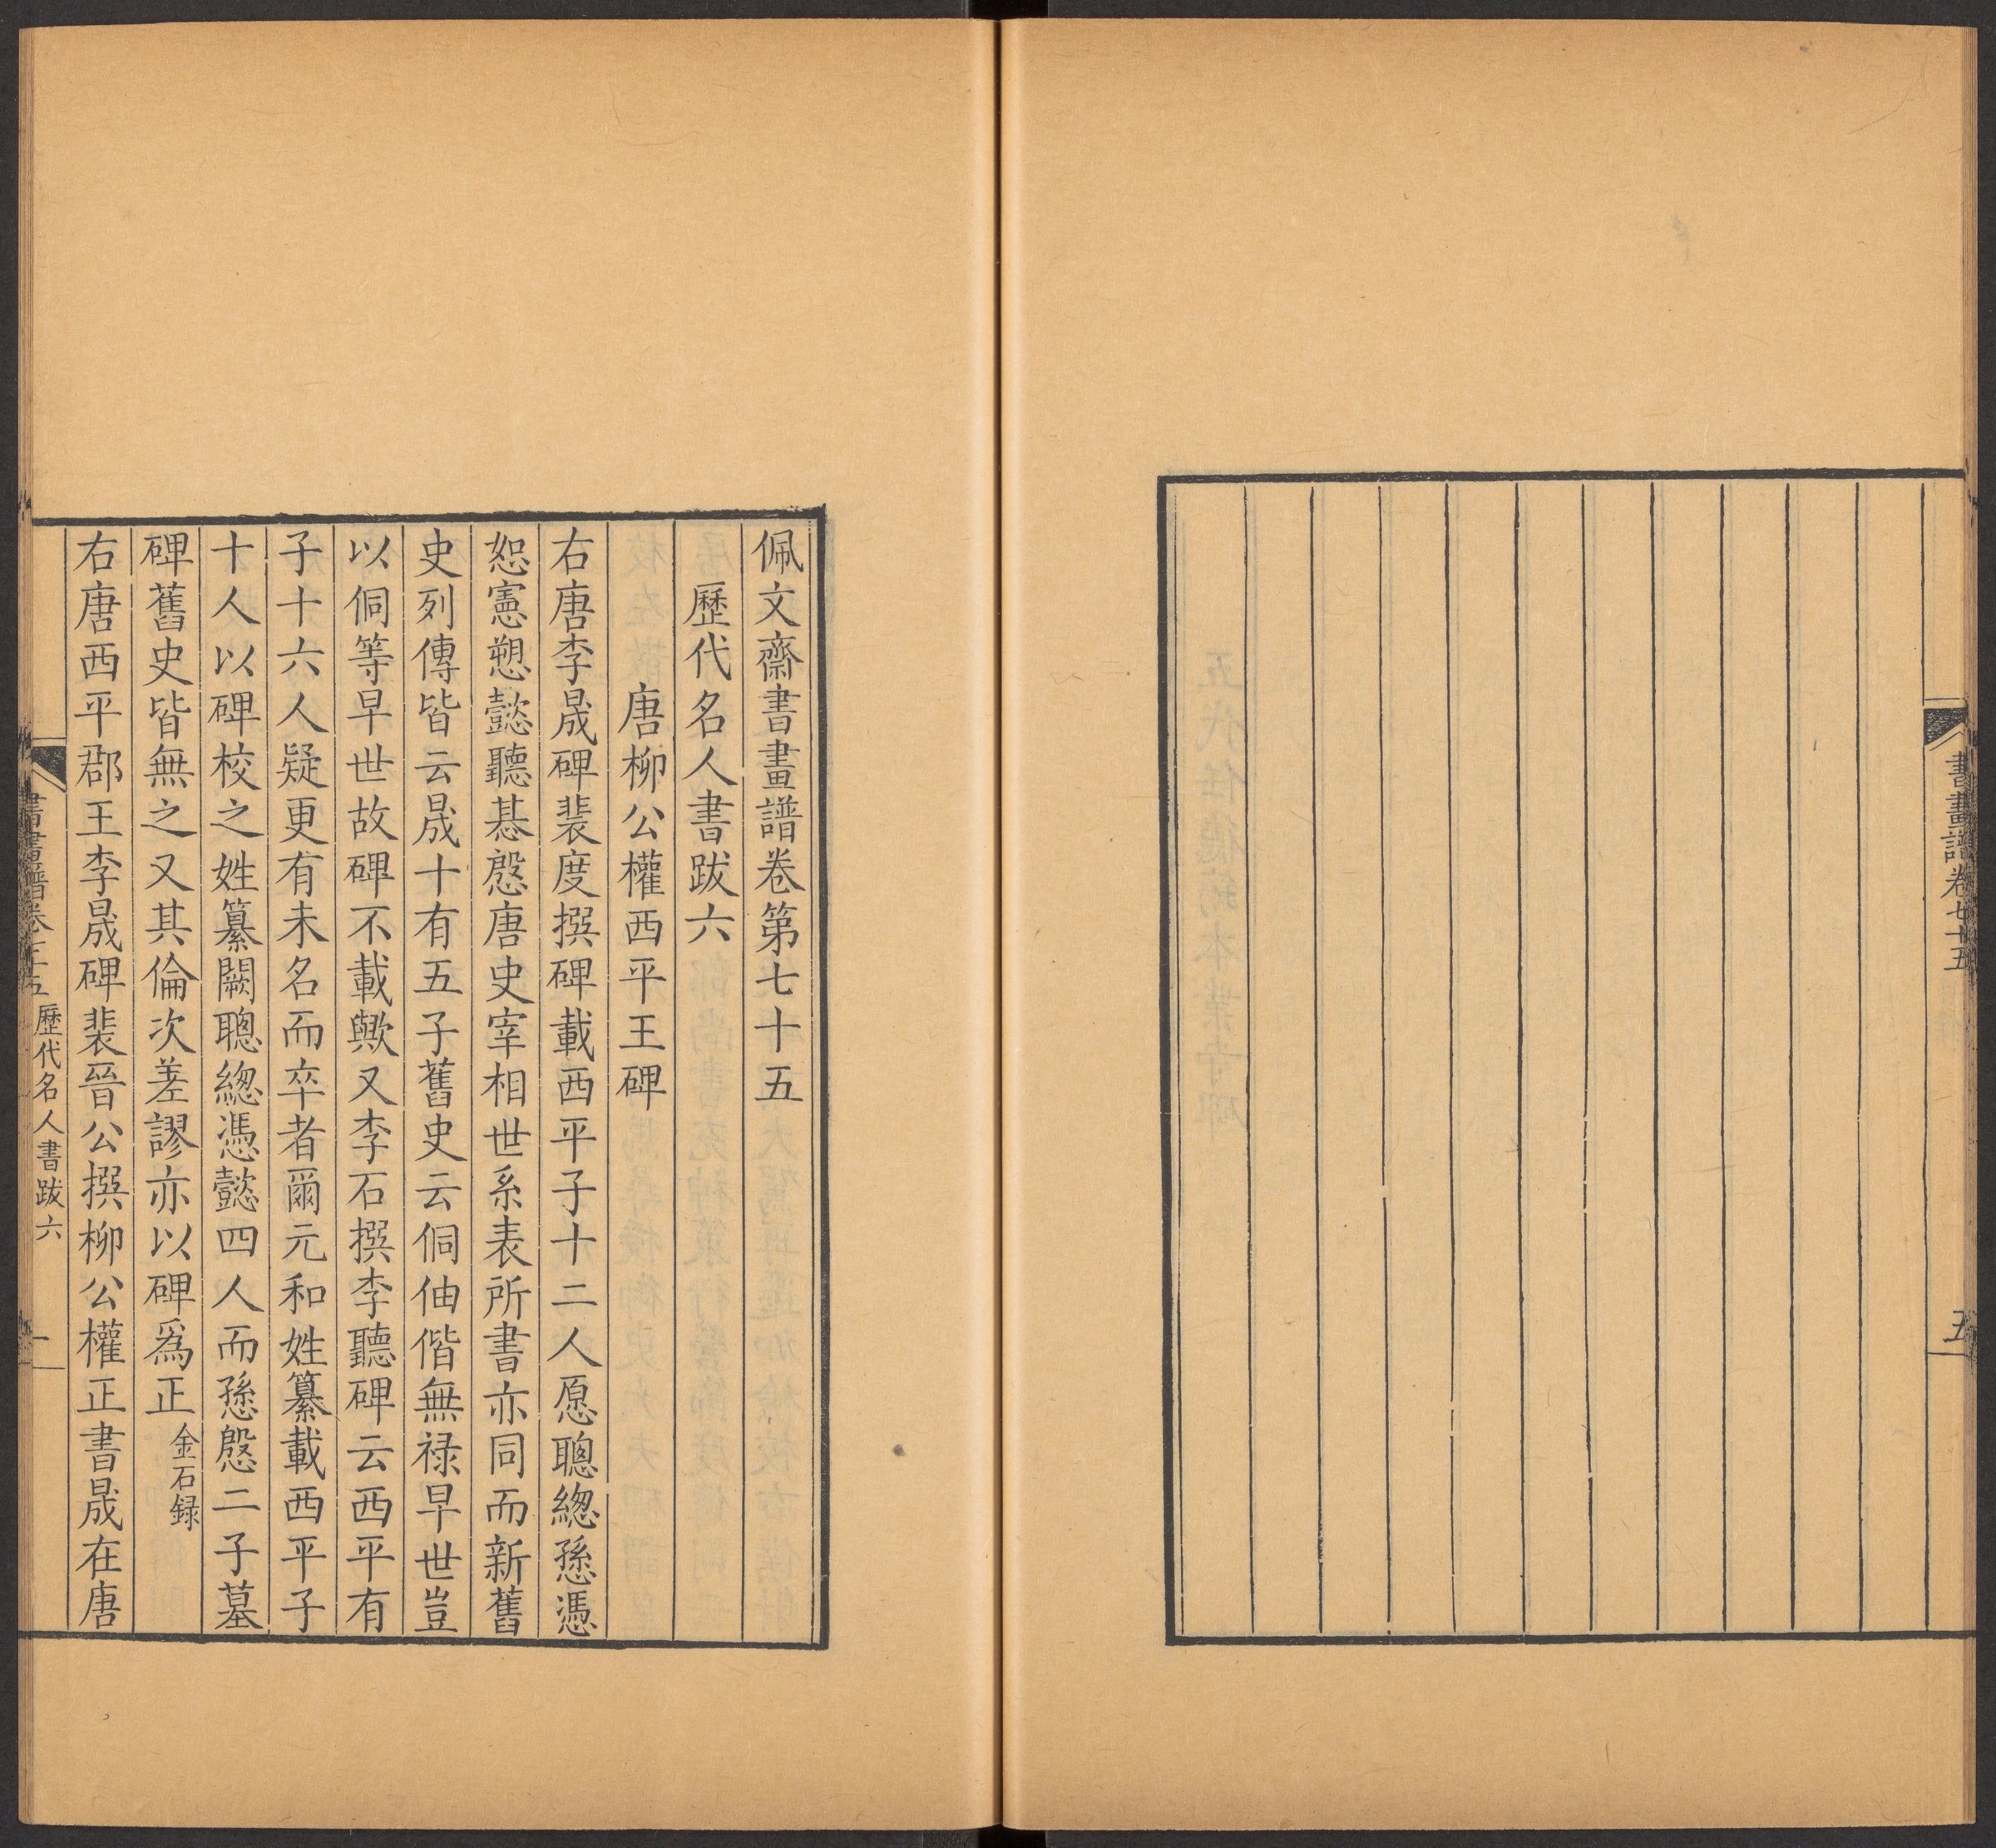 書畫譜卷七十五
五
佩文齋書畫譜卷第七十五
歷代名人書跋六
唐柳公權西平王碑
右唐李晟碑裴度撰碑載西平子十二人愿聰總愻憑
恕憲愬懿聽惎慇唐史宰相世系表所書亦同而新舊
史列傳皆云晟十有五子舊史云侗伷偕無祿早世豈
以侗等早世故碑不載歟又李石撰李聽碑云西平有
子十六人疑更有未名而卒者爾元和姓纂載西平子
十人以碑校之姓纂闕聰總憑懿四人而愻慇二子墓
碑舊史皆無之又其倫次差謬亦以碑爲正金石録
右唐西平郡王李晟碑裴晉公撰柳公權正書晟在唐
書畫譜卷七十五 歷代名人書跋六 一